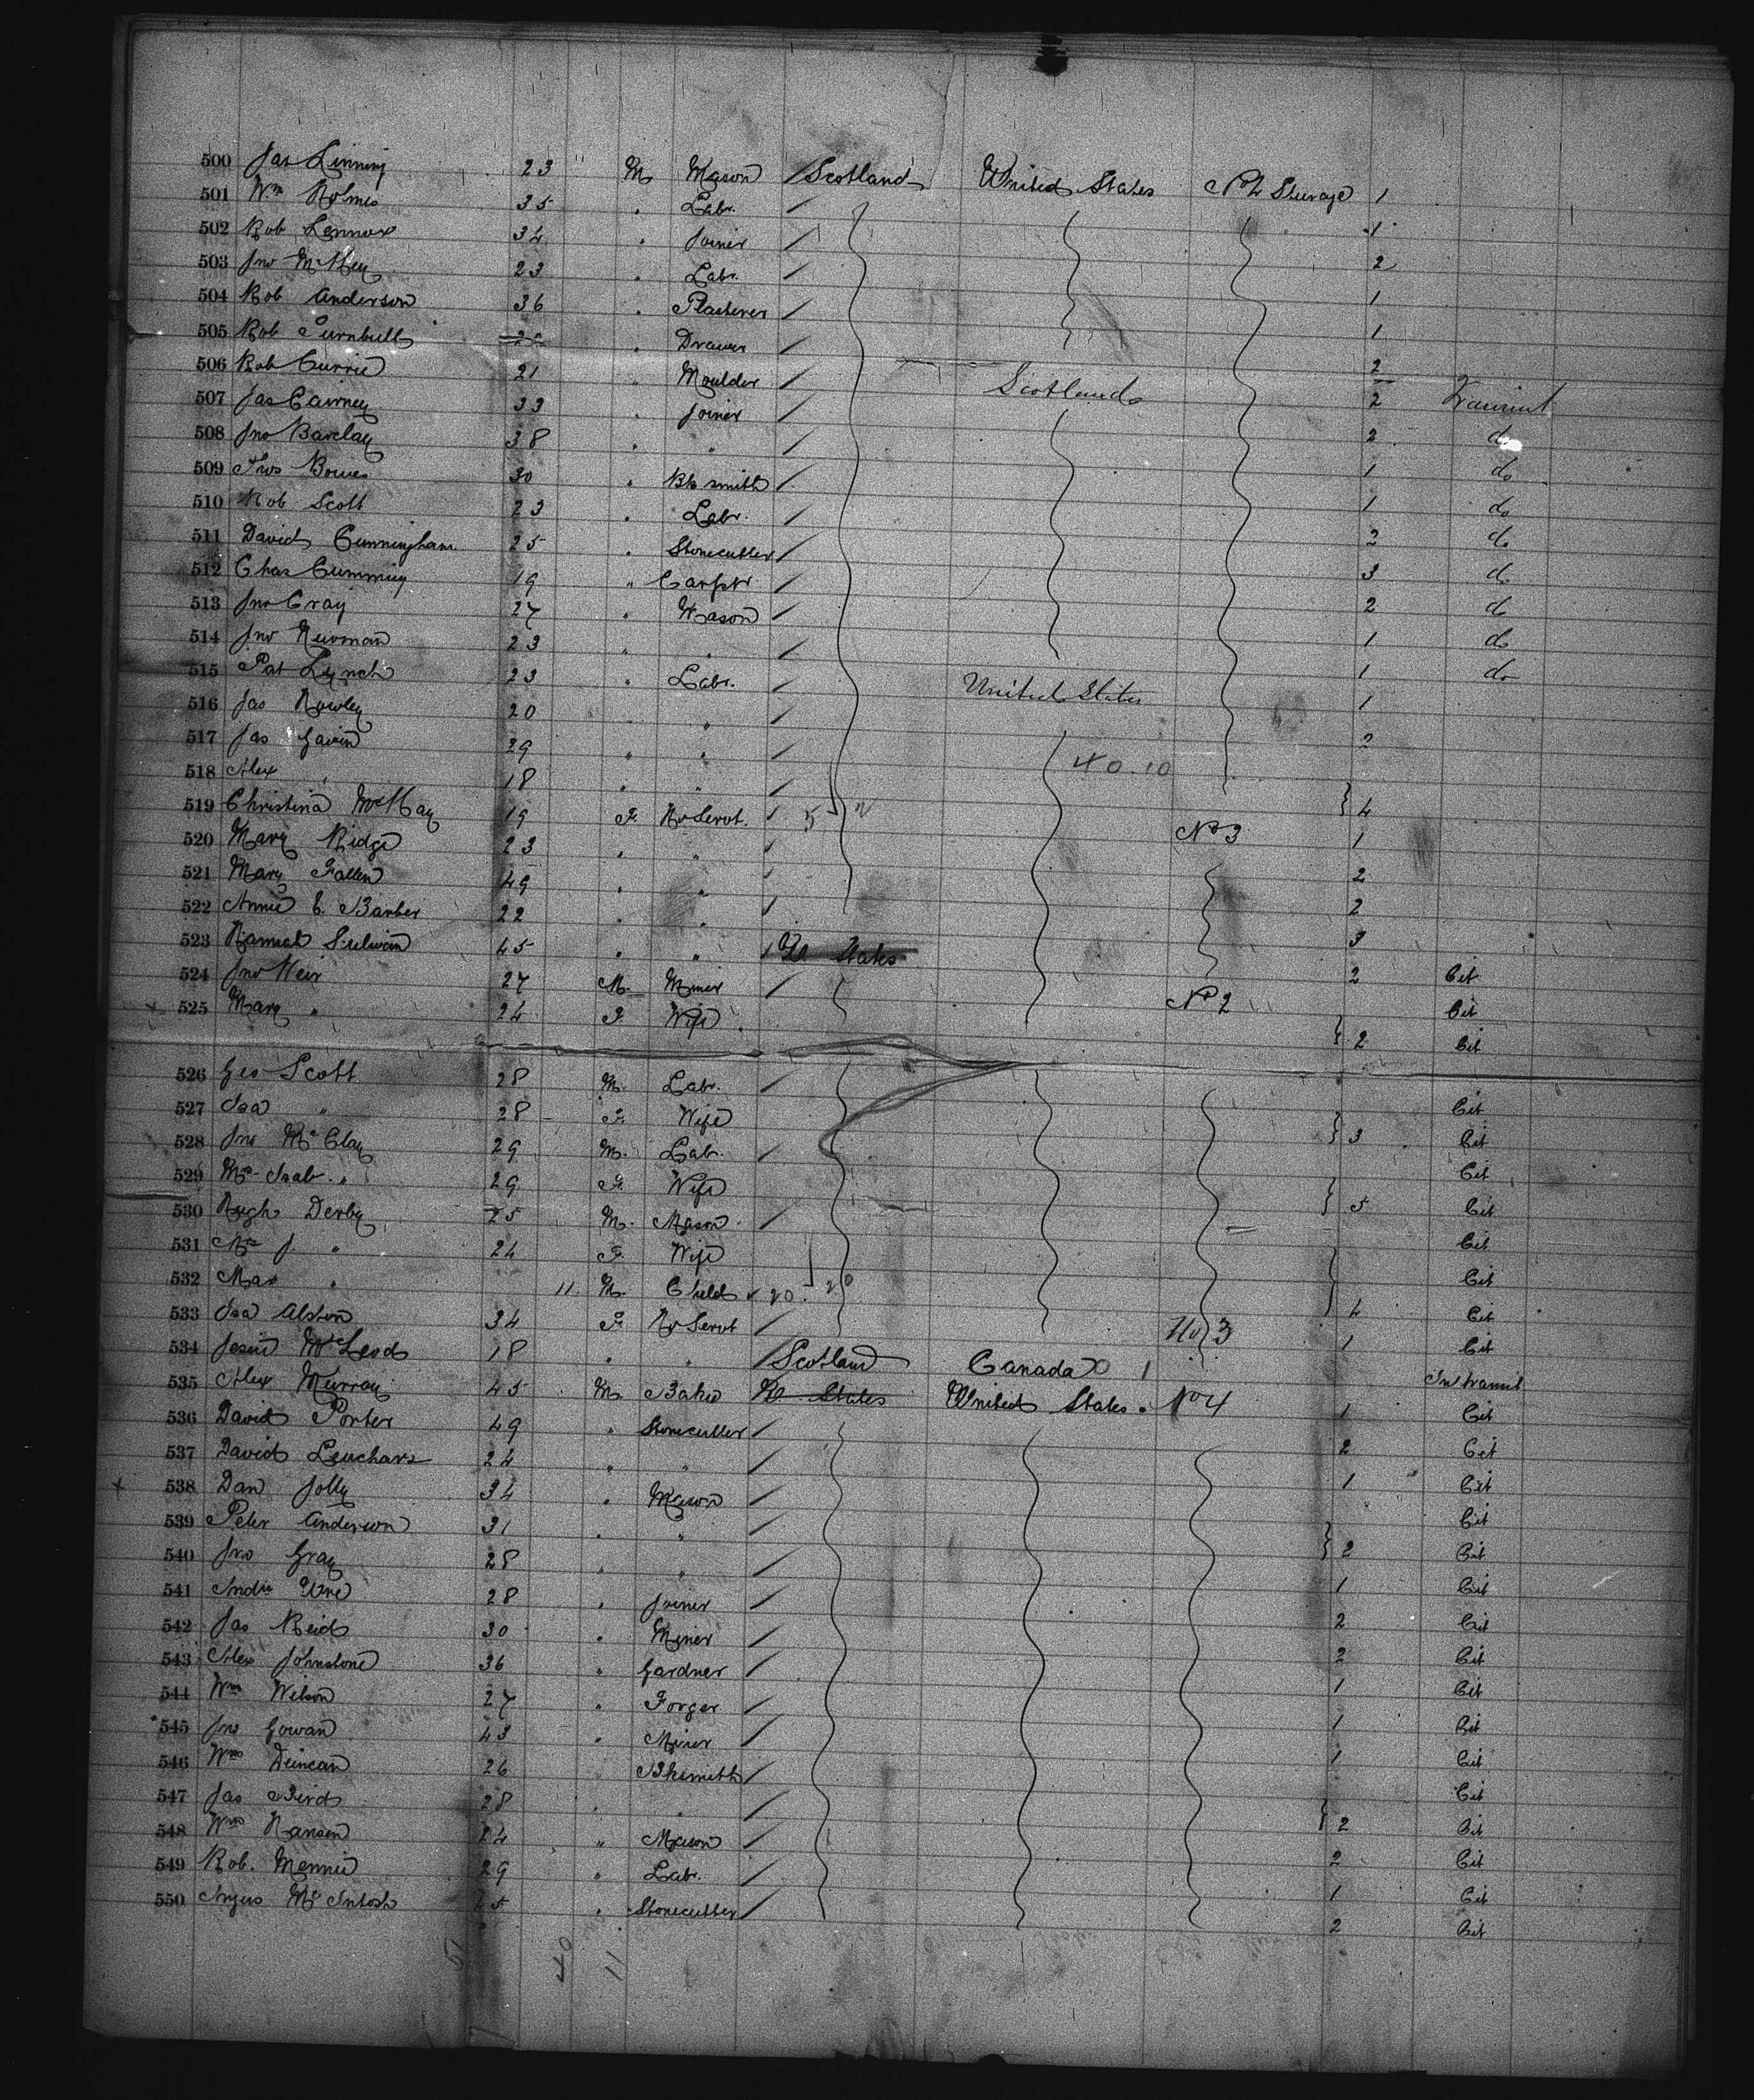 500 Jas Linning 23 M Mason Scotland United States No 2 Steerage 1
501 Wm Holmes 35 " Labr. 1
502 Rob Lennox 34 " Joiner 2
503 Jno 23 " Labr. 1
504 Rob Anderson 36 " Plasterer 1
505 Rob Turnbull " Drawer 2
506 Rob Currie 21 " Moulder Scotland 2 Transient
507 Jas Cairney 33 " Joiner 2 do
508 Jno Barclay 38 " " 1 do
509 Thos Bowes 30 " Bksmith 1 do
510 Rob Scott 23 " Labr. 2 do
511 David Cunningham 25 " Stonecutter 3 do
512 Chas Cumming 19 " Carptr 2 do
513 Jno Gray 27 " Mason 1 do
514 Jno Newman 23 " " 1 do
515 Pat Lynch 23 " Labr. United States 1
516 Jas Rowley 20 " " 2
517 Jas Gavin 29 " " 40.10
518 Alex " 18 " " 4
519 Christina McKay 19 F. Ho Servt. No 3 1
520 Mary Ridge 23 " " 2
521 Mary Fallen 49 " " 2
522 Annie E. Barber 22 " " 3
523 Hannah Sulivan 45 " " U. States 2 Cit
524 Jno Weir 27 M. Miner No 2 Cit
525 Mary " 24 F. Wife 2 Cit
526 Geo Scott 28 M. Labr. Cit
527 Isa " 28 F. Wife 3 Cit
528 Jno McClay 29 M. Labr. Cit
529 Mrs Isab. " 29 F. Wife 5 Cit
530 Hugh Derby 25 M. Mason Cit
531 Mrs J. " 24 F. Wife Cit
532 Max " 11 M. Child 20 4 Cit
533 Isa Alston 34 F. Ho Servt No 3 1 Cit
534 Jessie McLeod 18 " " Scotland Canada 1 In transit
535 Alex Murray 45 M Baker U. States United States No 4 1 Cit
536 David Porter 49 " Stonecutter 2 Cit
537 David Leuchars 24 " " 1 Cit
538 Dan Jolly 34 " Mason Cit
539 Peter Anderson 31 " " 2 Cit
540 Jno Gray 28 " " 1 Cit
541 Andw Ure 28 " Joiner 2 Cit
542 Jas Reid 30 " Miner 2 Cit
543 Alex Johnstone 36 " Gardner 1 Cit
544 Wm Wilson 27 " Forger 1 Cit
545 Jno Gowan 43 " Miner 1 Cit
546 Wm Duncan 26 Bksmith Cit
547 Jas Bird 28 " " 2 Cit
548 Wm Hansen 24 " Mason 2 Cit
549 Rob. Mennie 29 " Labr. 1 Cit
550 Angus McIntosh 45 " Stonecutter 2 Cit
51 40 11